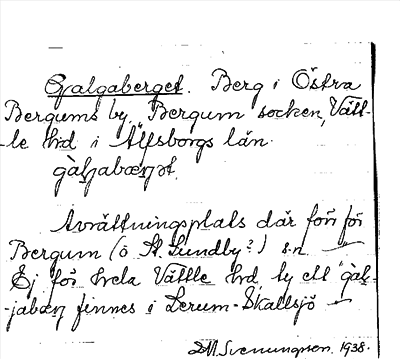 Galgaberget. Berg i Östra
Bergums by, Bergum socken, Vätt-
-le hrd i Älfsborgs län.
Avrättningsplats där förr för
Bergum (o St. Lundby?) s.n.
Ej för hela Vättle hrd, ty ett gal-
-jabærj finnes i Lerum-Skallsjö
D.M. Svenungson. 1938.